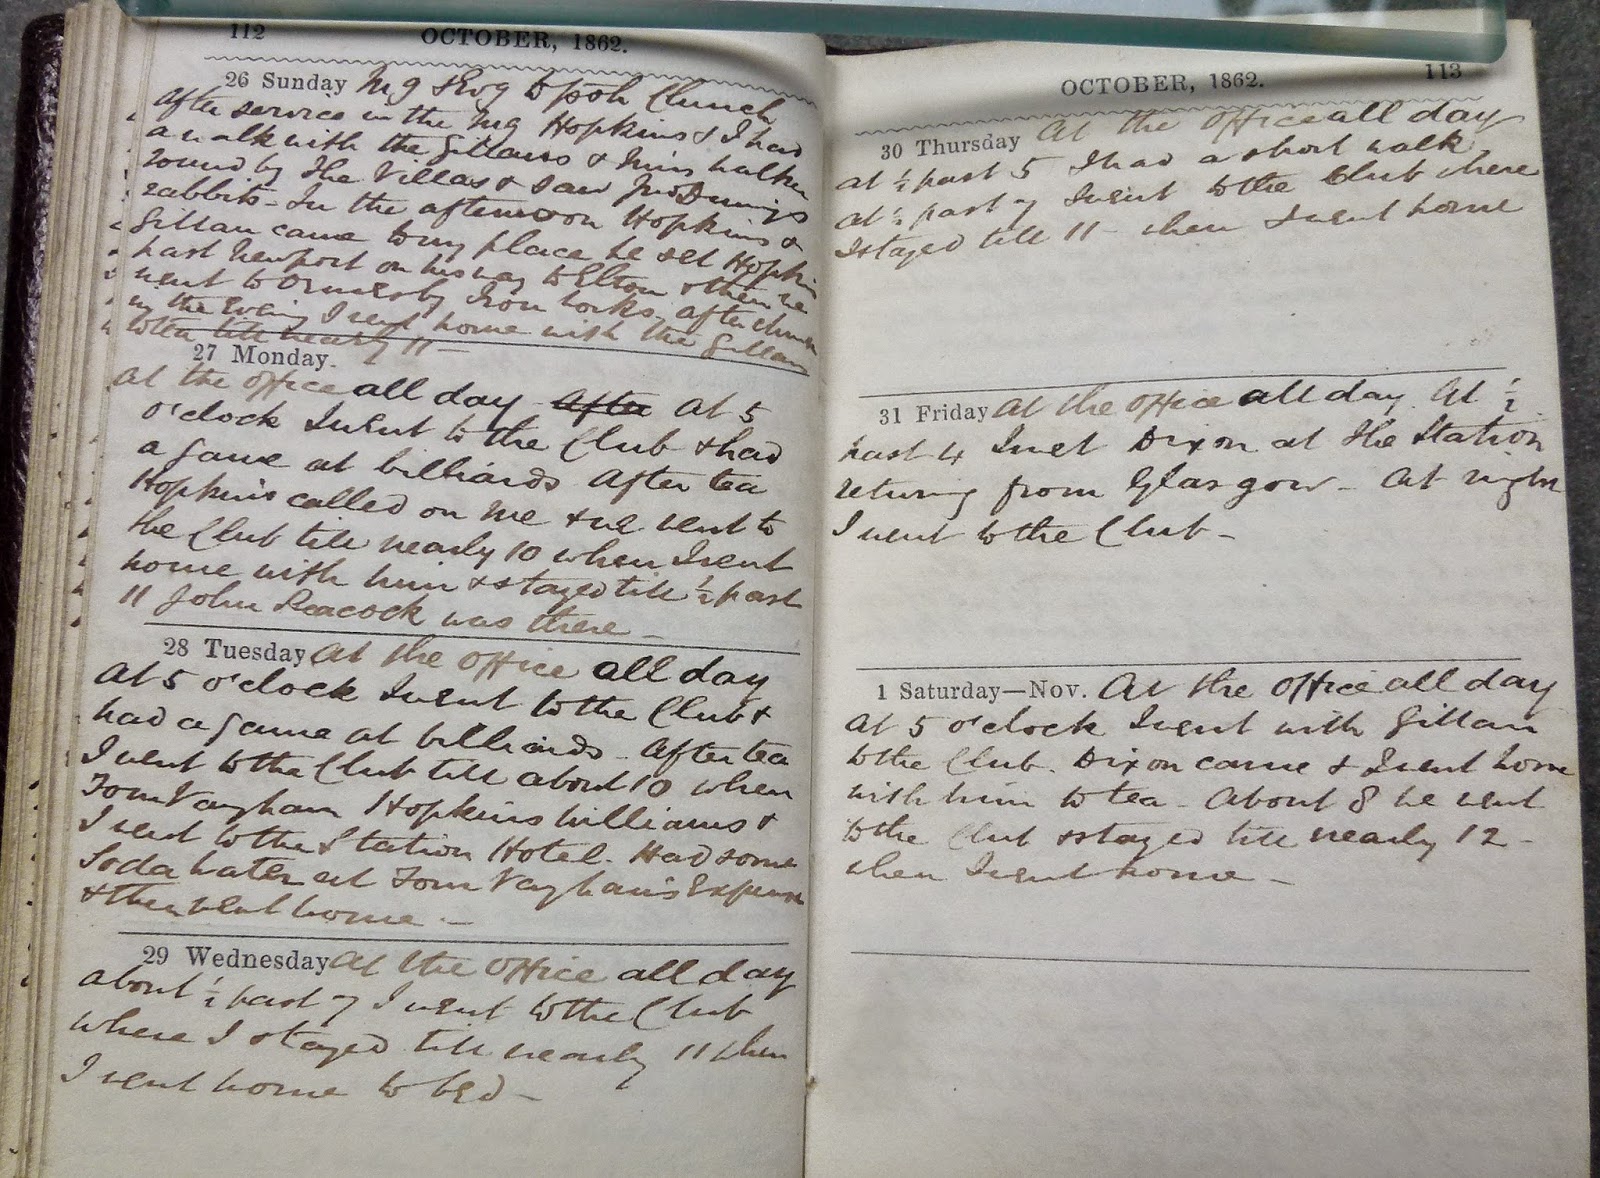 112
OCTOBER, 1862.
26 Sunday Mg & Evg to poh Church
After service in the Mg Hopkins & I had
a walk with the Gillans & Miss Walker
round by the Villas & saw
rabbits - In the afternoon Hopkins &
Gillan came to my place he set Hopkins
past Newport on his way to Elton & then he
went to Ormesby Iron Works. After church
in the Evening I went home with the Gillans
to tea till nearly 11 -
27 Monday.
At the Office all day After At 5
o'clock I went to the Club & had
a game at billiards After tea
Hopkins called on me & we went to
the Club till nearly 10 when I went
home with him & stayed till ½ past
11 John Peacock was there -
28 Tuesday At the Office all day
At 5 o'clock I went to the Club &
had a game at billiards - After tea
I went to the Club till about 10 when
Tom Vaughan Hopkins Williams &
I went to the Station Hotel. Had some
Soda Water at Tom Vaughan's Expense
& then went home -
29 Wednesday At the Office all day
about ½ past 7 I went to the Club
where I stayed till nearly 11 when
I went home to bed -
OCTOBER, 1862.
113
30 Thursday At the Office all day
at ½ past 5 I had a short walk
at ½ past 7 I went to the Club where
I stayed till 11 - when I went home
31 Friday At the Office all day. At ½
past 4 I met Dixon at the Station
returning from Glasgow - At night
I went to the Club -
1 Saturday—Nov. At the Office all day
At 5 o'clock I went with Gillan
to the Club. Dixon came & I went home
with him to tea - About 8 we went
to the Club & stayed till nearly 12 -
when I went home -